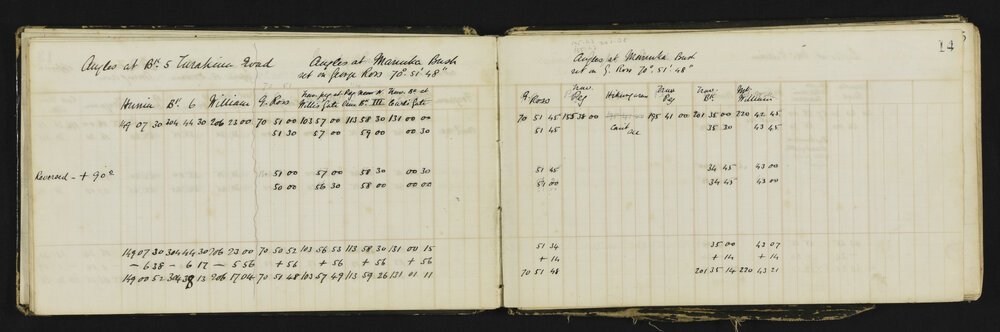 Angles at Bk. 5 Turakina Road
Angles at Manuka Bush
set on George Ross 70° 51' 48"
Hunia Bk. 6 William G. Ross Trav. peg at Peg near N. Trav. No at
Willis Gate Bk. III Gate
149 07 30 304 44 30 206 23 00 70 51 00 103 57 00 113 58 30 131 00 00
51 30 57 00 59 00 00 30
Reversed - + 90°
51 00 57 00 58 30 00 30
50 00 56 30 58 00 00 00
149 07 30 304 44 30 206 23 00 70 50 52 103 56 53 113 58 30 131 00 15
- 6 38 - 6 17 - 5 56 + 56 + 56 + 56 + 56
149 00 52 304 38 13 206 17 04 70 51 48 103 57 49 113 59 26 131 01 11
14
Angles at Manuka Bush
set on G. Ross 70°. 51'. 48"
G. Ross Trav. Peg Trav. Peg Trav. Bk. William
70 51 45 155 38 00 195 41 00 201 35 00 220 42 45
51 45 can't see 35 30 43 45
51 45 34 45 43 00
51 00 34 45 43 00
51 34 35 00 43 07
+ 14 + 14 + 14
70 51 48 201 35 14 220 43 21